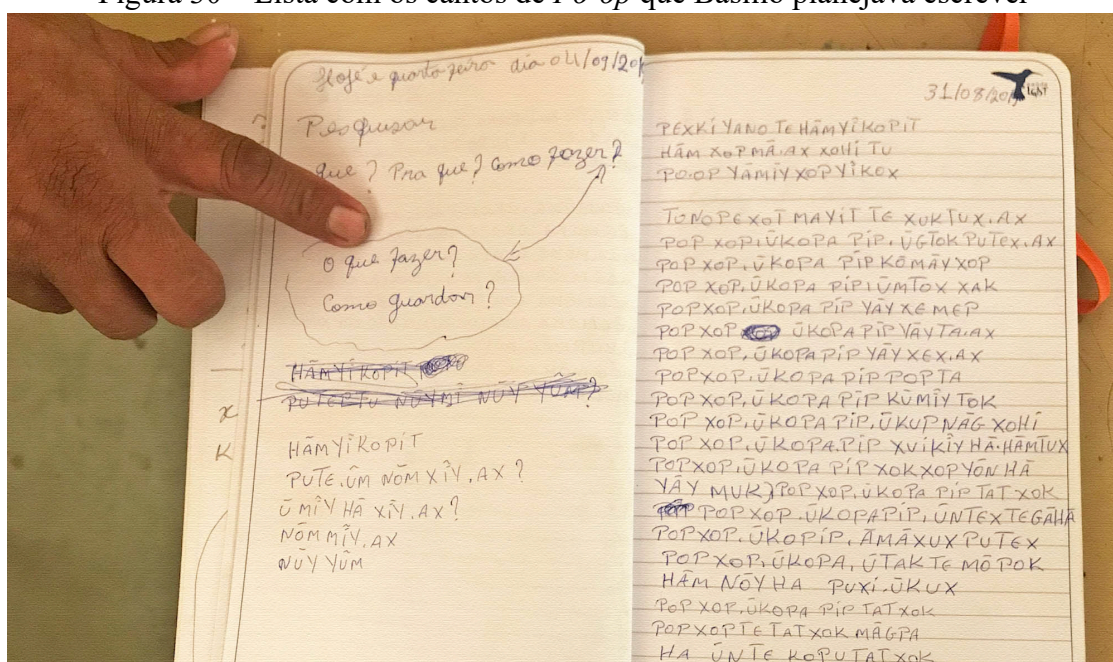 Figura 30 – Lista com os cantos de Po'op que Basílio planejava escrever
Hoje é quarta feira dia 04/09/20
Pesquisar
que? Pra que? Como fazer?
O que fazer?
Como guardar?
HÃMYĨKOPIT
PUTEPTU NŨYMĨ NŨY YŨM?
HÃMYĨKOPIT
PUTE.ŨM NÕMXĨY.AX?
Ũ MĨY HÃ XĨY.AX?
NÕM MĨY.AX
NŨY YŨM
31/08/20
PEXKIYANO TE HÃMYĨKOPIT
HÃM XOP MÃ.AX XOHI TU
PO.OP YÃMIY XOP YĨKOX
TONOPEXOT MAYIT TE XUKTUX.AX
POP XOP.ŨKOPA PIP.ŨGTOK PUTEX.AX
POP XOP.ŨKOPA PIP KÕMÃY XOP
POP XOP.ŨKOPA PIP.ŨMTOX XAK
POPXOP.ŨKOPA PIP YÃY XEMEP
POPXOP ŨKOPA PIP YÃYTA.AX
POP XOP.ŨKOPA PIP YÃY XEX.AX
POPXOP.ŨKOPA PIP POPTA
POPXOP.ŨKOPA PIP KŨMĨYTOK
POP XOP.ŨKOPA PIP.ŨKUP NÃG XOHI
POP XOP.ŨKOPA.PIP XUIKĨY HÃ.HÃMTUX
POPXOP.ŨKOPA PIP XOKXOP YÕN HÃ
YÃY MUK} POP XOP.ŨKOPA PIP TATXOK
POPXOP.ŨKOPAPIP.ŨNTEX TEGÃHÃ
POPXOP.ŨKOPIP.ÃMÃXUX PUTEX
POPXOP.ŨKOPA.ŨTAK TE MÕ POK
HÃM NÕY HA PUXI.ŨKUX
POP XOP.ŨKOPA PIP TATXOK
POPXOPTE TATXOK MÃGPA
HA ŨNTE KOPU TATXOK